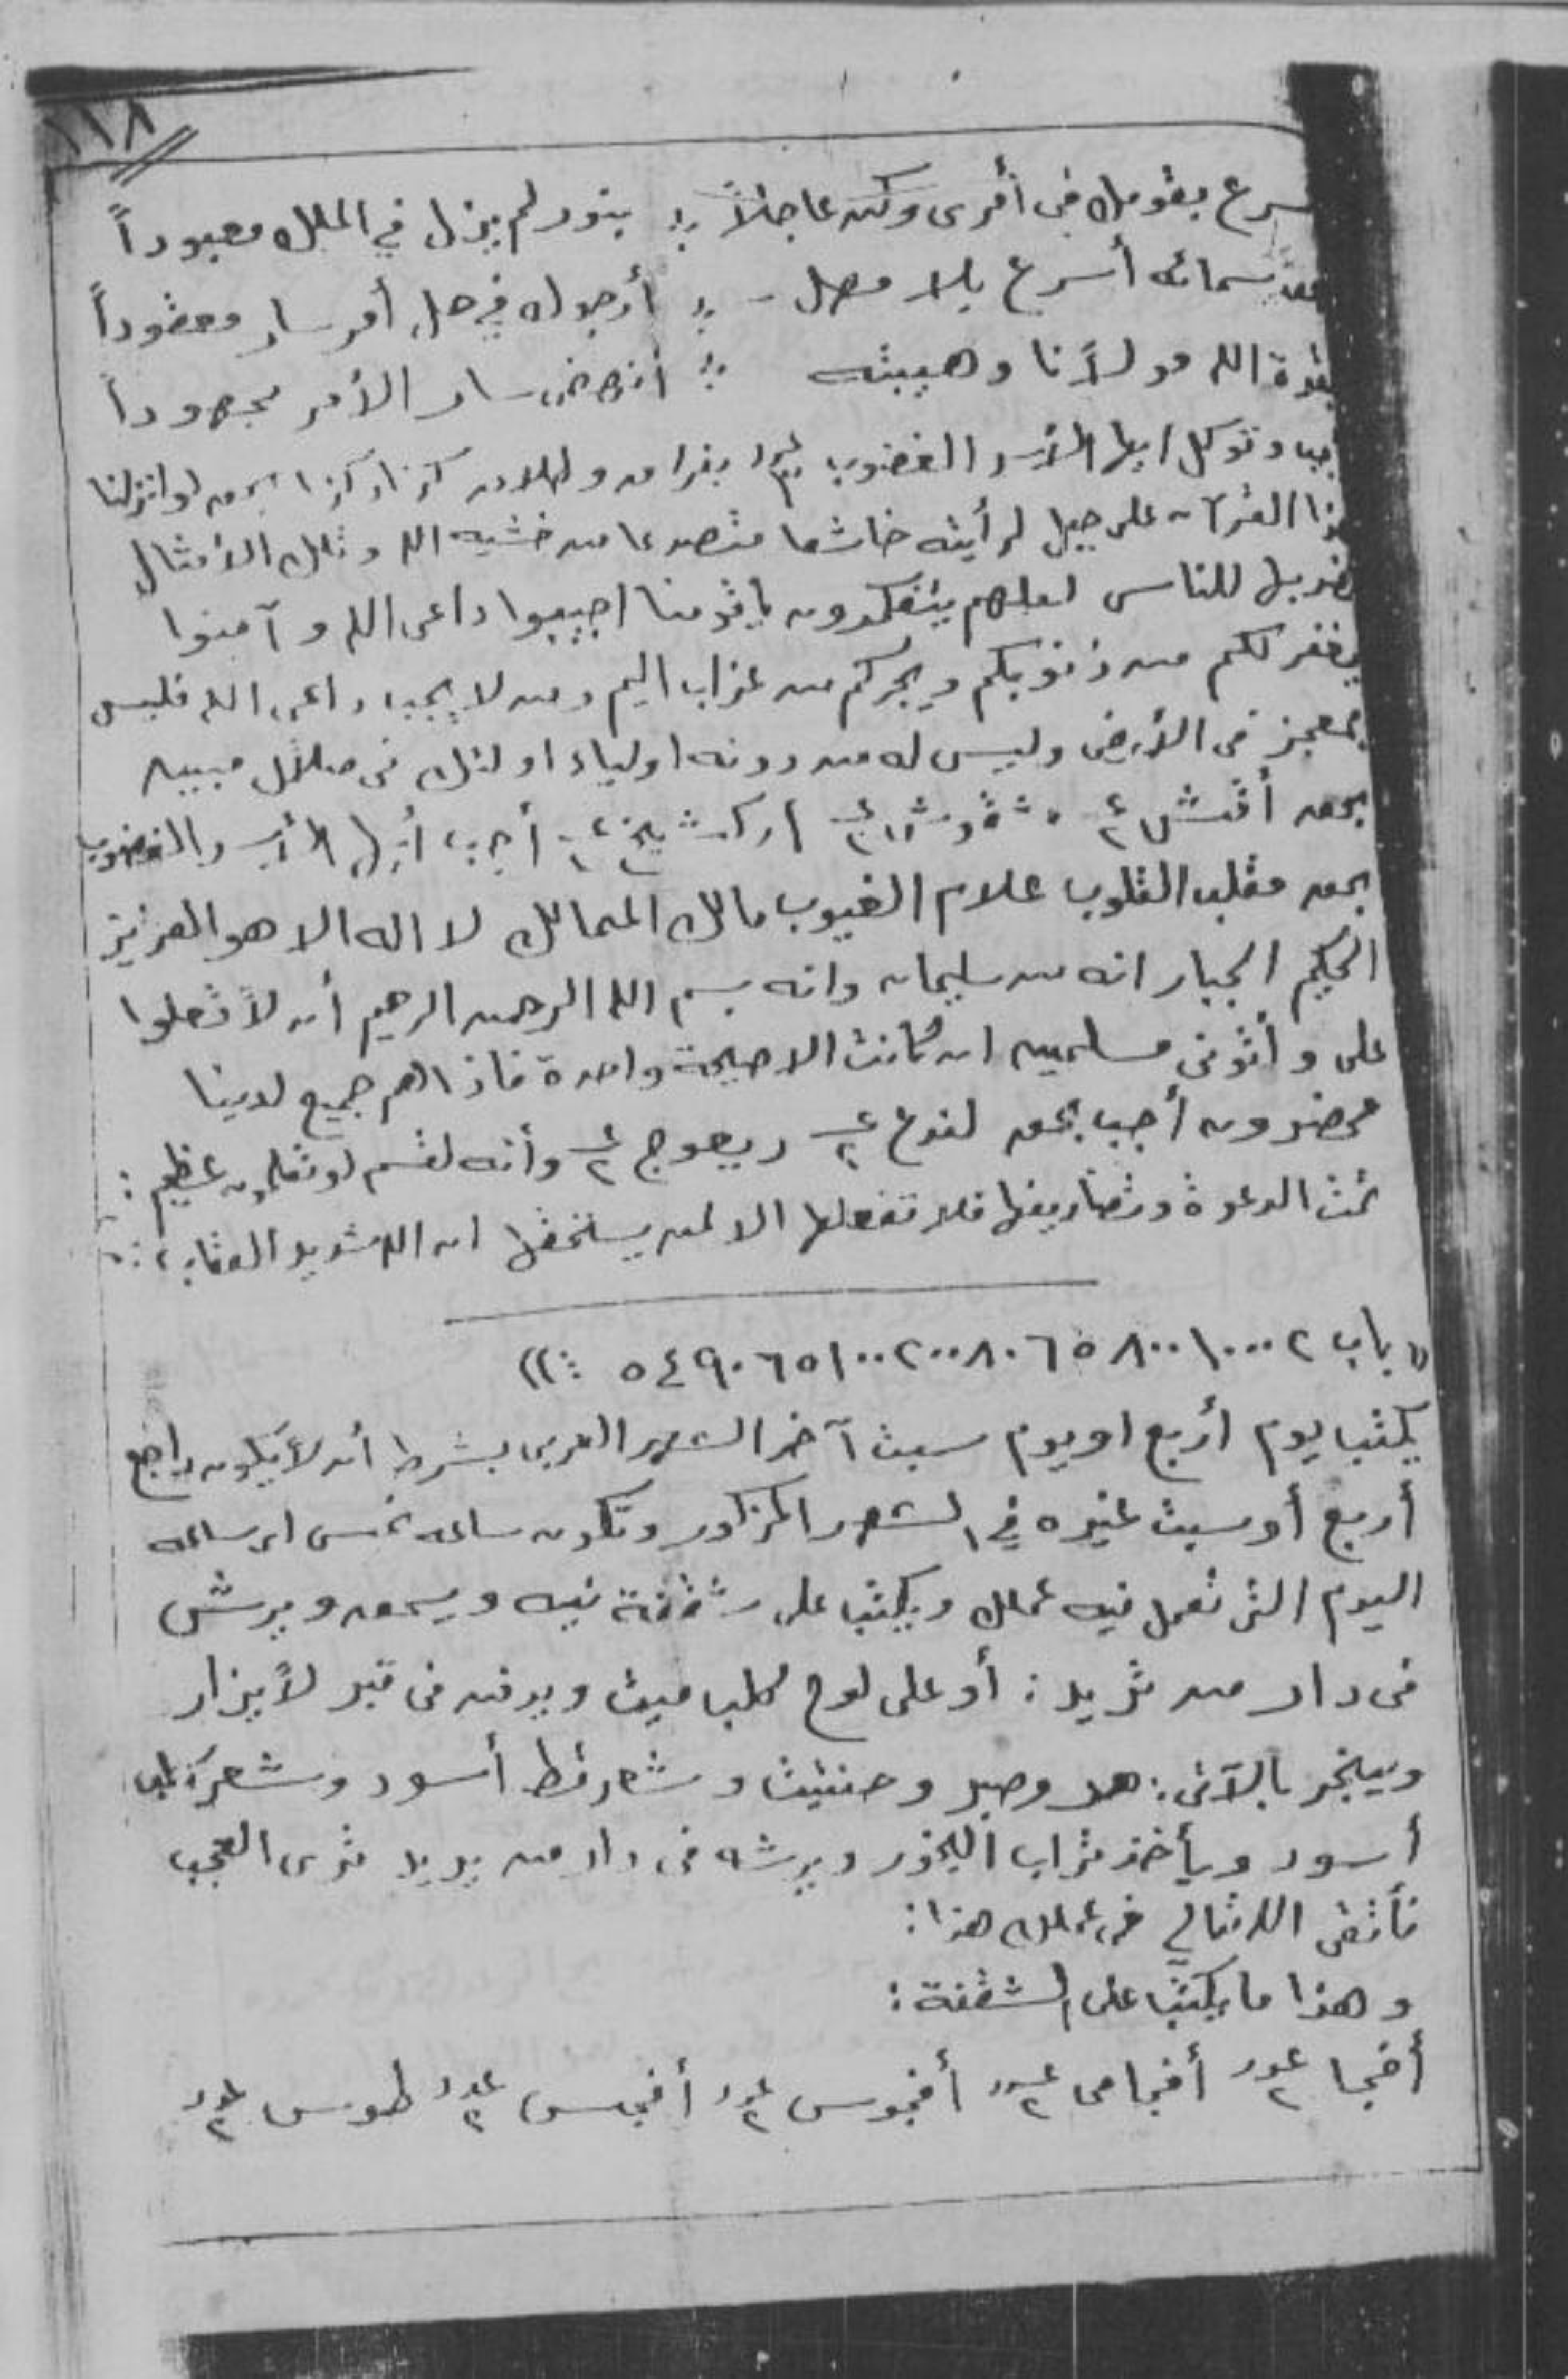 ١١٨
سرع بقومك فى أمرى وكن عاجلاً ؛ بنور لم يزل في الملك معبوداً
سمائه أسرع بلا مهل - ؛ أرجوك في حل أمر سار معقوداً
بقوة الله مولانا وهيبته ؛ سار الأمر مجهوداً
وتوكل ايها الأسد الغضوب بفراق وطلاق كذا وكذا بحق لو انزلنا
هذا القرآن على جبل لرأيته خاشعا متصدعا من خشيه الله وتلك الأمثال
نضربها للناس لعلهم يتفكرون ياقومنا اجيبوا داعى الله وآمنوا
يغفر لكم من ذنوبكم ويجركم من عذاب اليم ومن لا يجب داعى الله فليس
بمعجز فى الأرض وليس له من دونه اولياء اولئك فى ضلال مبين
بحق أقش ٢ع شقموش ٢ع اركشليخ ٢ع أجب أيها الأسد الغضوب
بحق مقلب القلوب علام الغيوب مالك الممالك لا اله الا هو العزيز
الحكيم الجبار انه من سليمان وانه بسم الله الرحمن الرحيم أن لا تعلوا
على وأتونى مسلمين ان كانت الا صيحة واحدة فاذا هم جميع لدينا
محضرون أجب بحق لندع ٢ع ديعوج ٢ع وأنه لقسم لو تعلمون عظيم :
تمت الدعوة وتصاريفها فلا تفعلها الا لمن يستحقها ان الله شديد العقاب ؛
« باب ٢ ١٠٠٠ ٨٠٠ ٥ ٦ ٨٠ ٢٠٠ ١٠٠ ٥ ٦ ٩٠ ٤ ٥ ؛ »
يكتب يوم أربع او يوم سبت آخر الشهر العربى بشرط أن لا يكون راجع
أربع أو سبت غيره في الشهر المذكور وتكون ساعه نحس اى ساعه
اليوم التى تعمل فيه عملك ويكتب على شقفة نيه ويسحق ويرش
فى دار من تريد : أو على لوح كلب ميت ويدفن فى قبر لا يزار
ويبخر بالآتى : وصبر وحنتيت وشعر قط أسود وشعر كلب
أسود ويأخذ تراب البخور ويرشه فى دار من يريد ترى العجب
فأتقى الله تعالى فى عملك هذا :
وهذا ما يكتب على الشقفة :
أفجا ٢عدد أفجامى ٢عدد أفجوس ٢عدد أفجس ٢عدد طوس ٢عدد